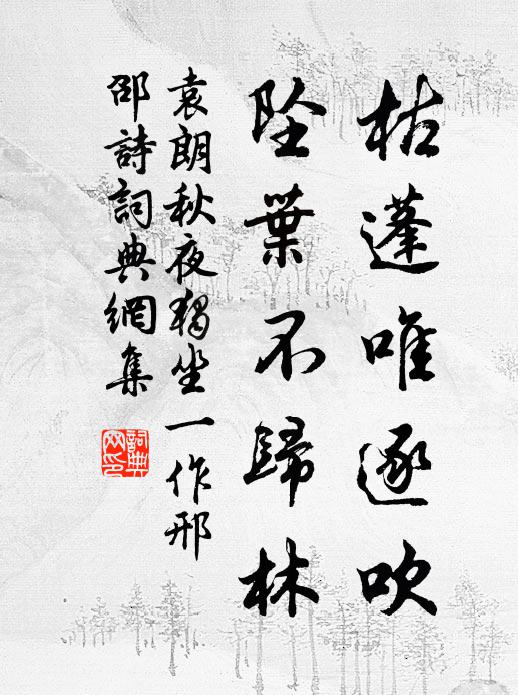 枯蓬唯逐吹
坠葉不歸林
袁朗秋夜獨坐一作邢
邵詩詞典網集
詞典網印